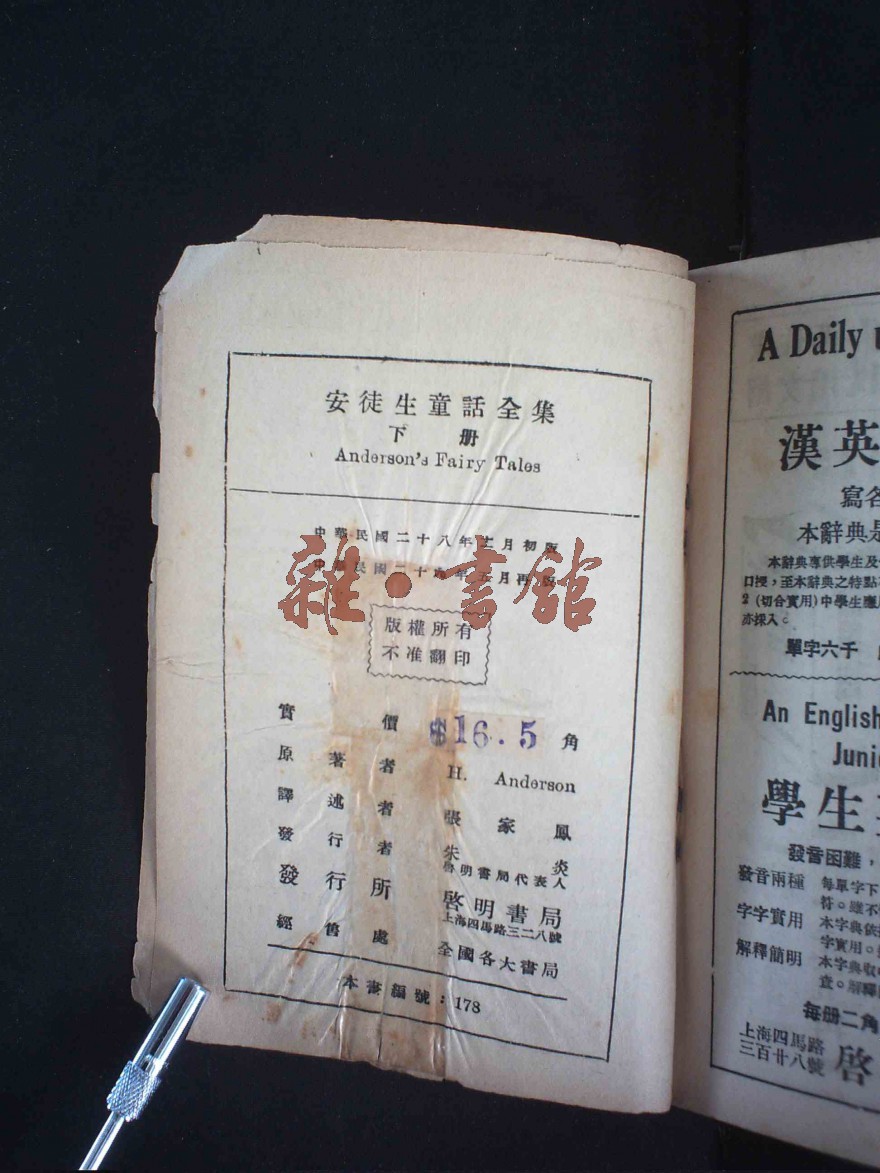 安徒生童話全集
下册
Anderson's Fairy Tales
中華民國二十八年 月初版
中華民國二十 年五月再版
雜·書館
版權所有
不准翻印
實價 $16.5 角
原著者 H. Anderson
譯述者 張家鳳
發行者 朱炎
啓明書局代表人
發行所 啓明書局
上海四馬路三二八號
經售處 全國各大書局
本書編號：178
A Daily
漢英
寫名
本辭典是
本辭典專供學生及
口授，至本辭典之特點
2 (切合實用)中學生應
亦採入。
單字六千
An English
Junio
學生
發音困難，
發音兩種 每單字下
符。雖不
字字實用 本字典依
字實用。
解釋簡明 本字典收
查。解釋
每册二角
上海四馬路
三百廿八號 啓